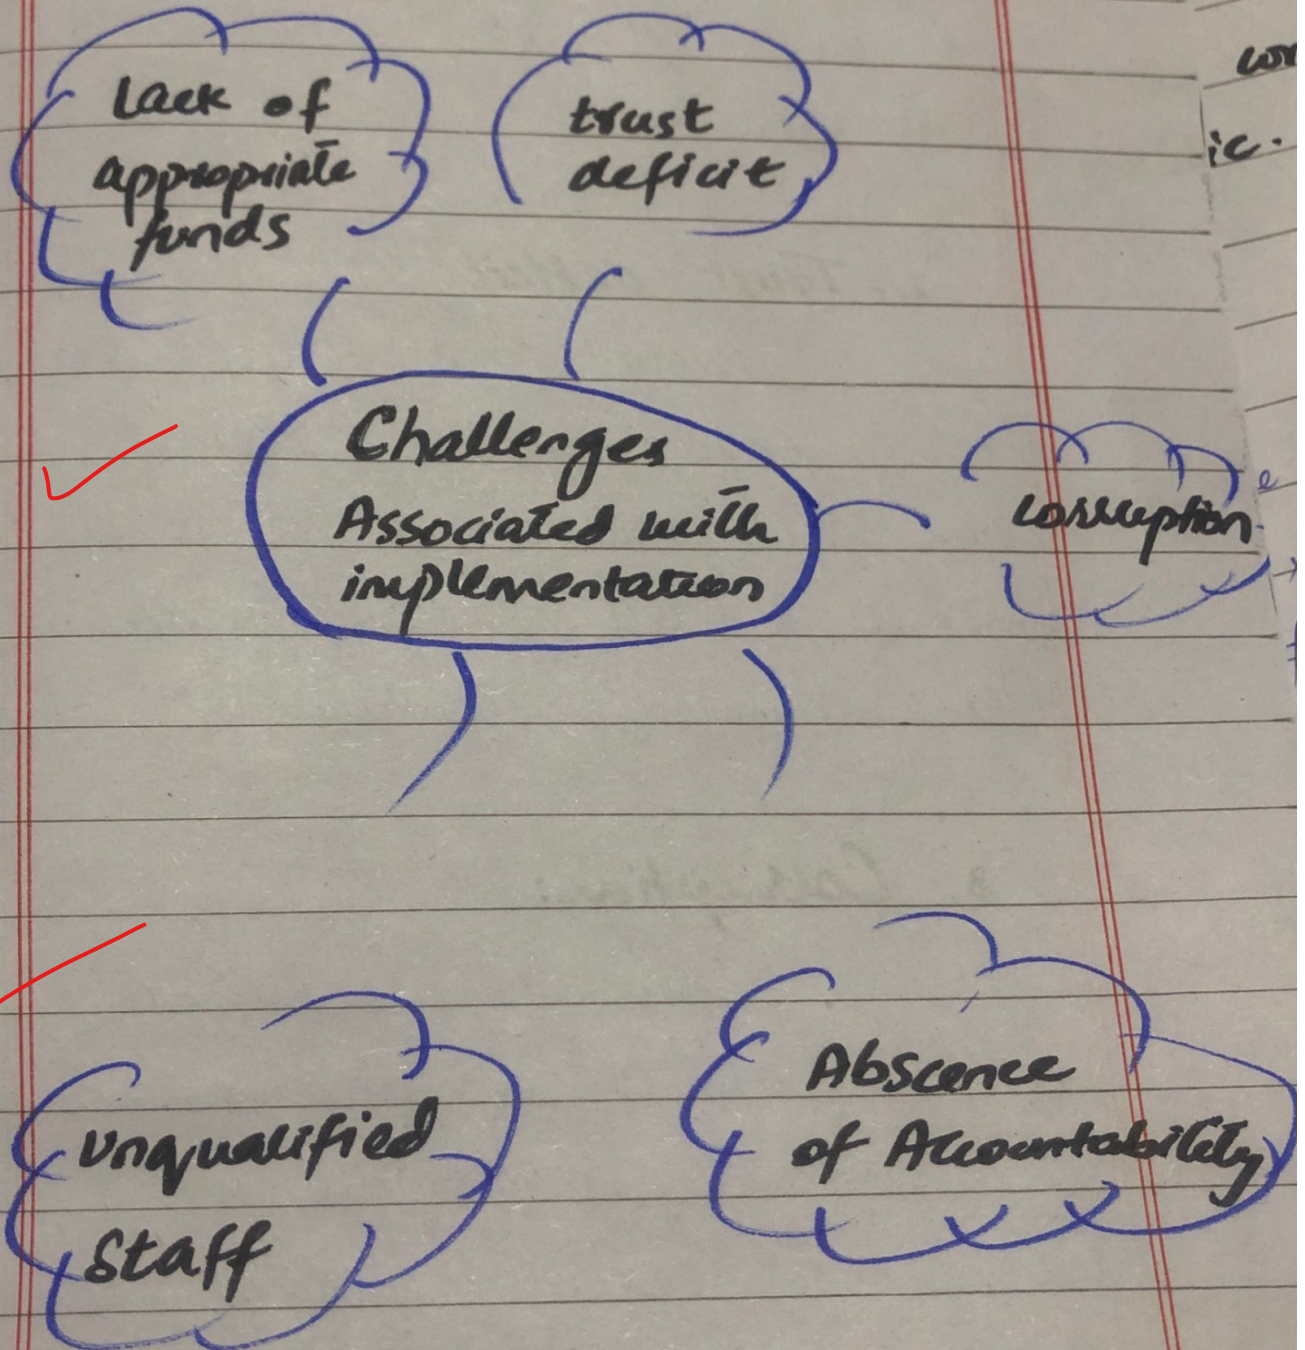 Lack of
appropriate
funds
trust
deficit
Challenges
Associated with
implementation
corruption
Unqualified
Staff
Abscence
of Accountability